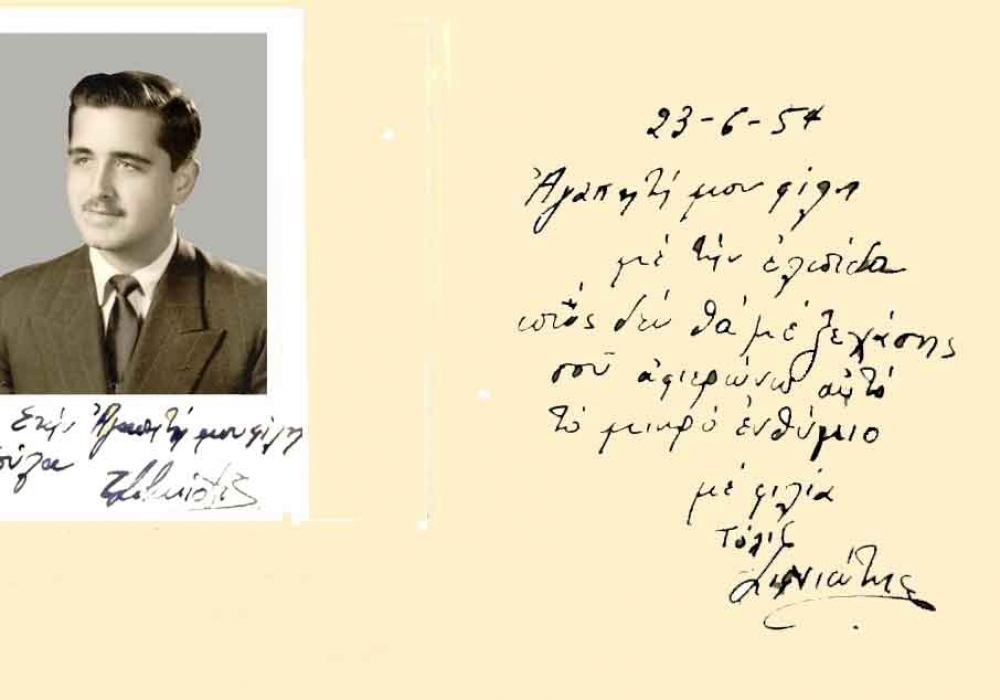 Στήν Ἀγαπητή μου φίλη
23-6-54
Ἀγαπητή μου φίλη
μέ τήν ἐλπίδα
πῶς δέν θά μέ ξεχάσης
σοῦ ἀφιερώνω αὐτό
τό μικρό ἐνθύμιο
μέ φιλία
Τόλις